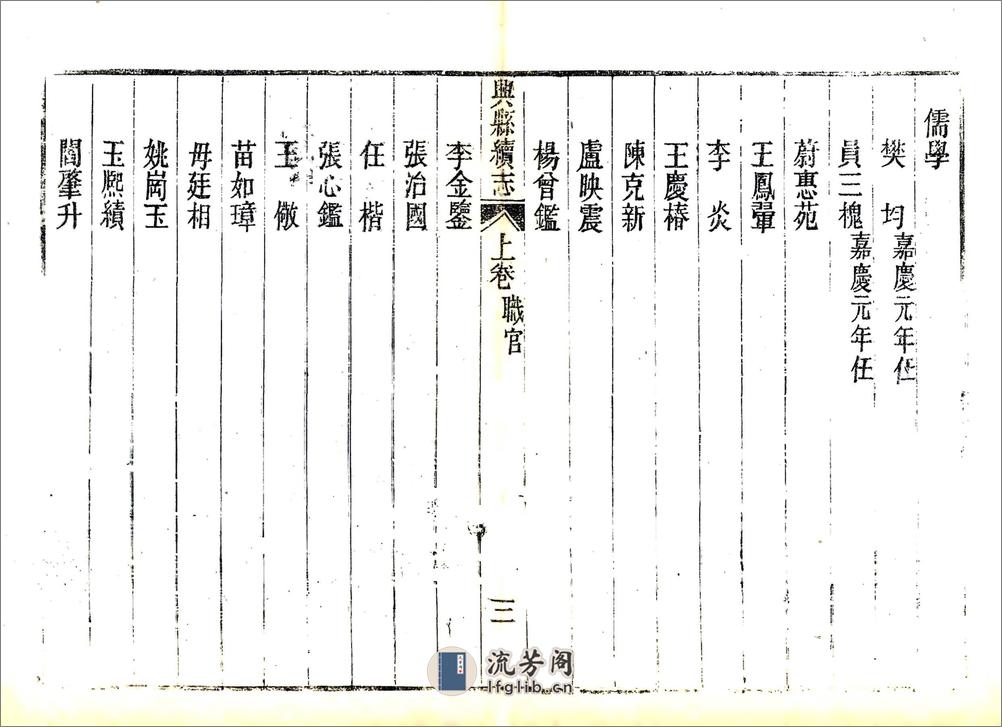 儒學
樊 均 嘉慶元年任
員三槐 嘉慶元年任
蔚惠苑
王鳳翬
李 炎
王慶椿
陳克新
盧映震
楊曾鑑
興縣續志 上卷 職官 三
李金鑒
張治國
任 楷
張心鑑
王 儆
苗如璋
毋廷相
姚崗玉
王熙績
閻肇升
流芳阁
lfglib.cn